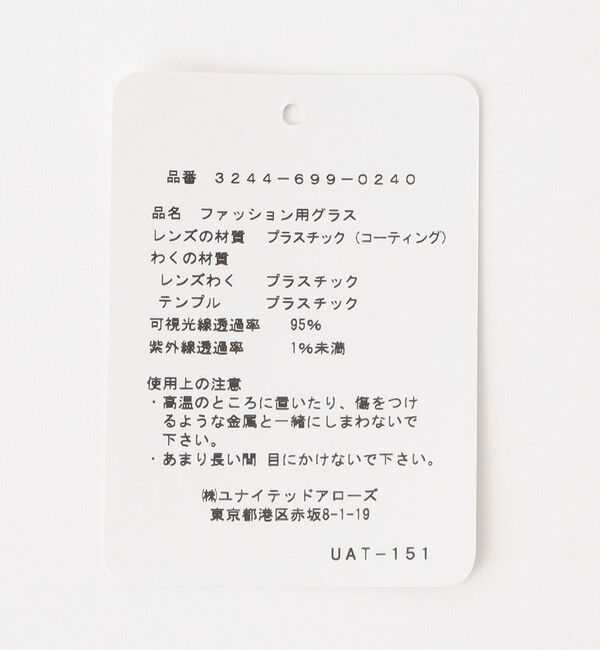 品番 3244-699-0240
品名 ファッション用グラス
レンズの材質 プラスチック（コーティング）
わくの材質
レンズわく プラスチック
テンプル プラスチック
可視光線透過率 95%
紫外線透過率 1%未満
使用上の注意
・高温のところに置いたり、傷をつけ
るような金属と一緒にしまわないで
下さい。
・あまり長い間 目にかけないで下さい。
㈱ユナイテッドアローズ
東京都港区赤坂8-1-19
UAT-151